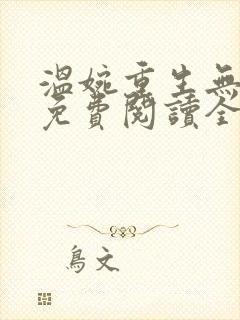 溫婉重生無
免費閱讀全
鳥文